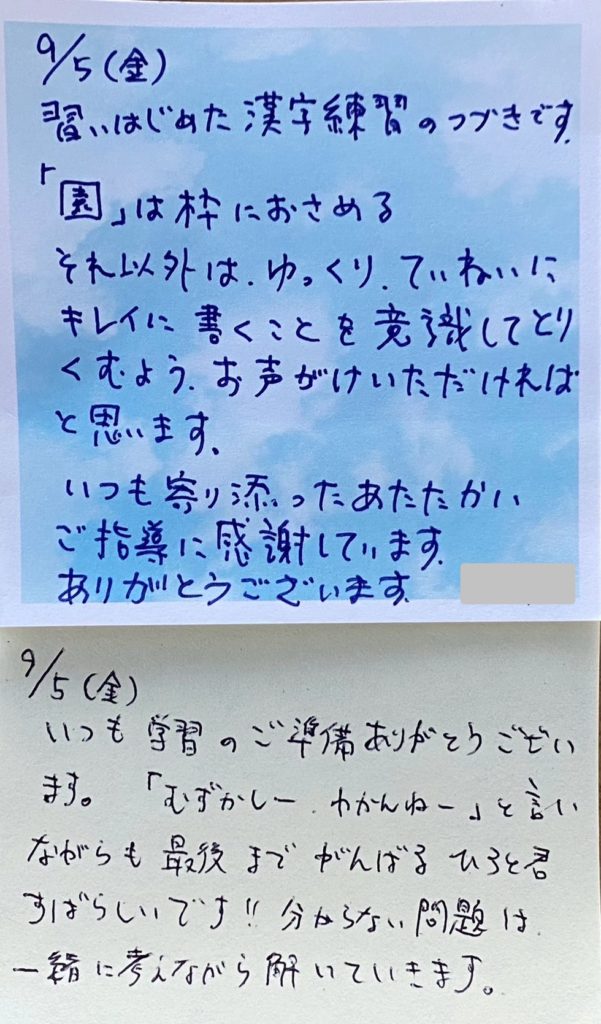 9/5(金)
習いはじめた漢字練習のつづきです.
「園」は枠におさめる
それ以外は、ゆっくり、ていねいに
キレイに書くことを意識してとり
くむよう、お声がけいただければ
と思います。
いつも寄り添ったあたたかい
ご指導に感謝しています.
ありがとうございます.
9/5(金)
いつも学習のご準備ありがとうござい
ます。「むずかしー、わかんねー」と言い
ながらも最後までがんばるひろと君
すばらしいです!!分からない問題は、
一緒に考えながら解いていきます。